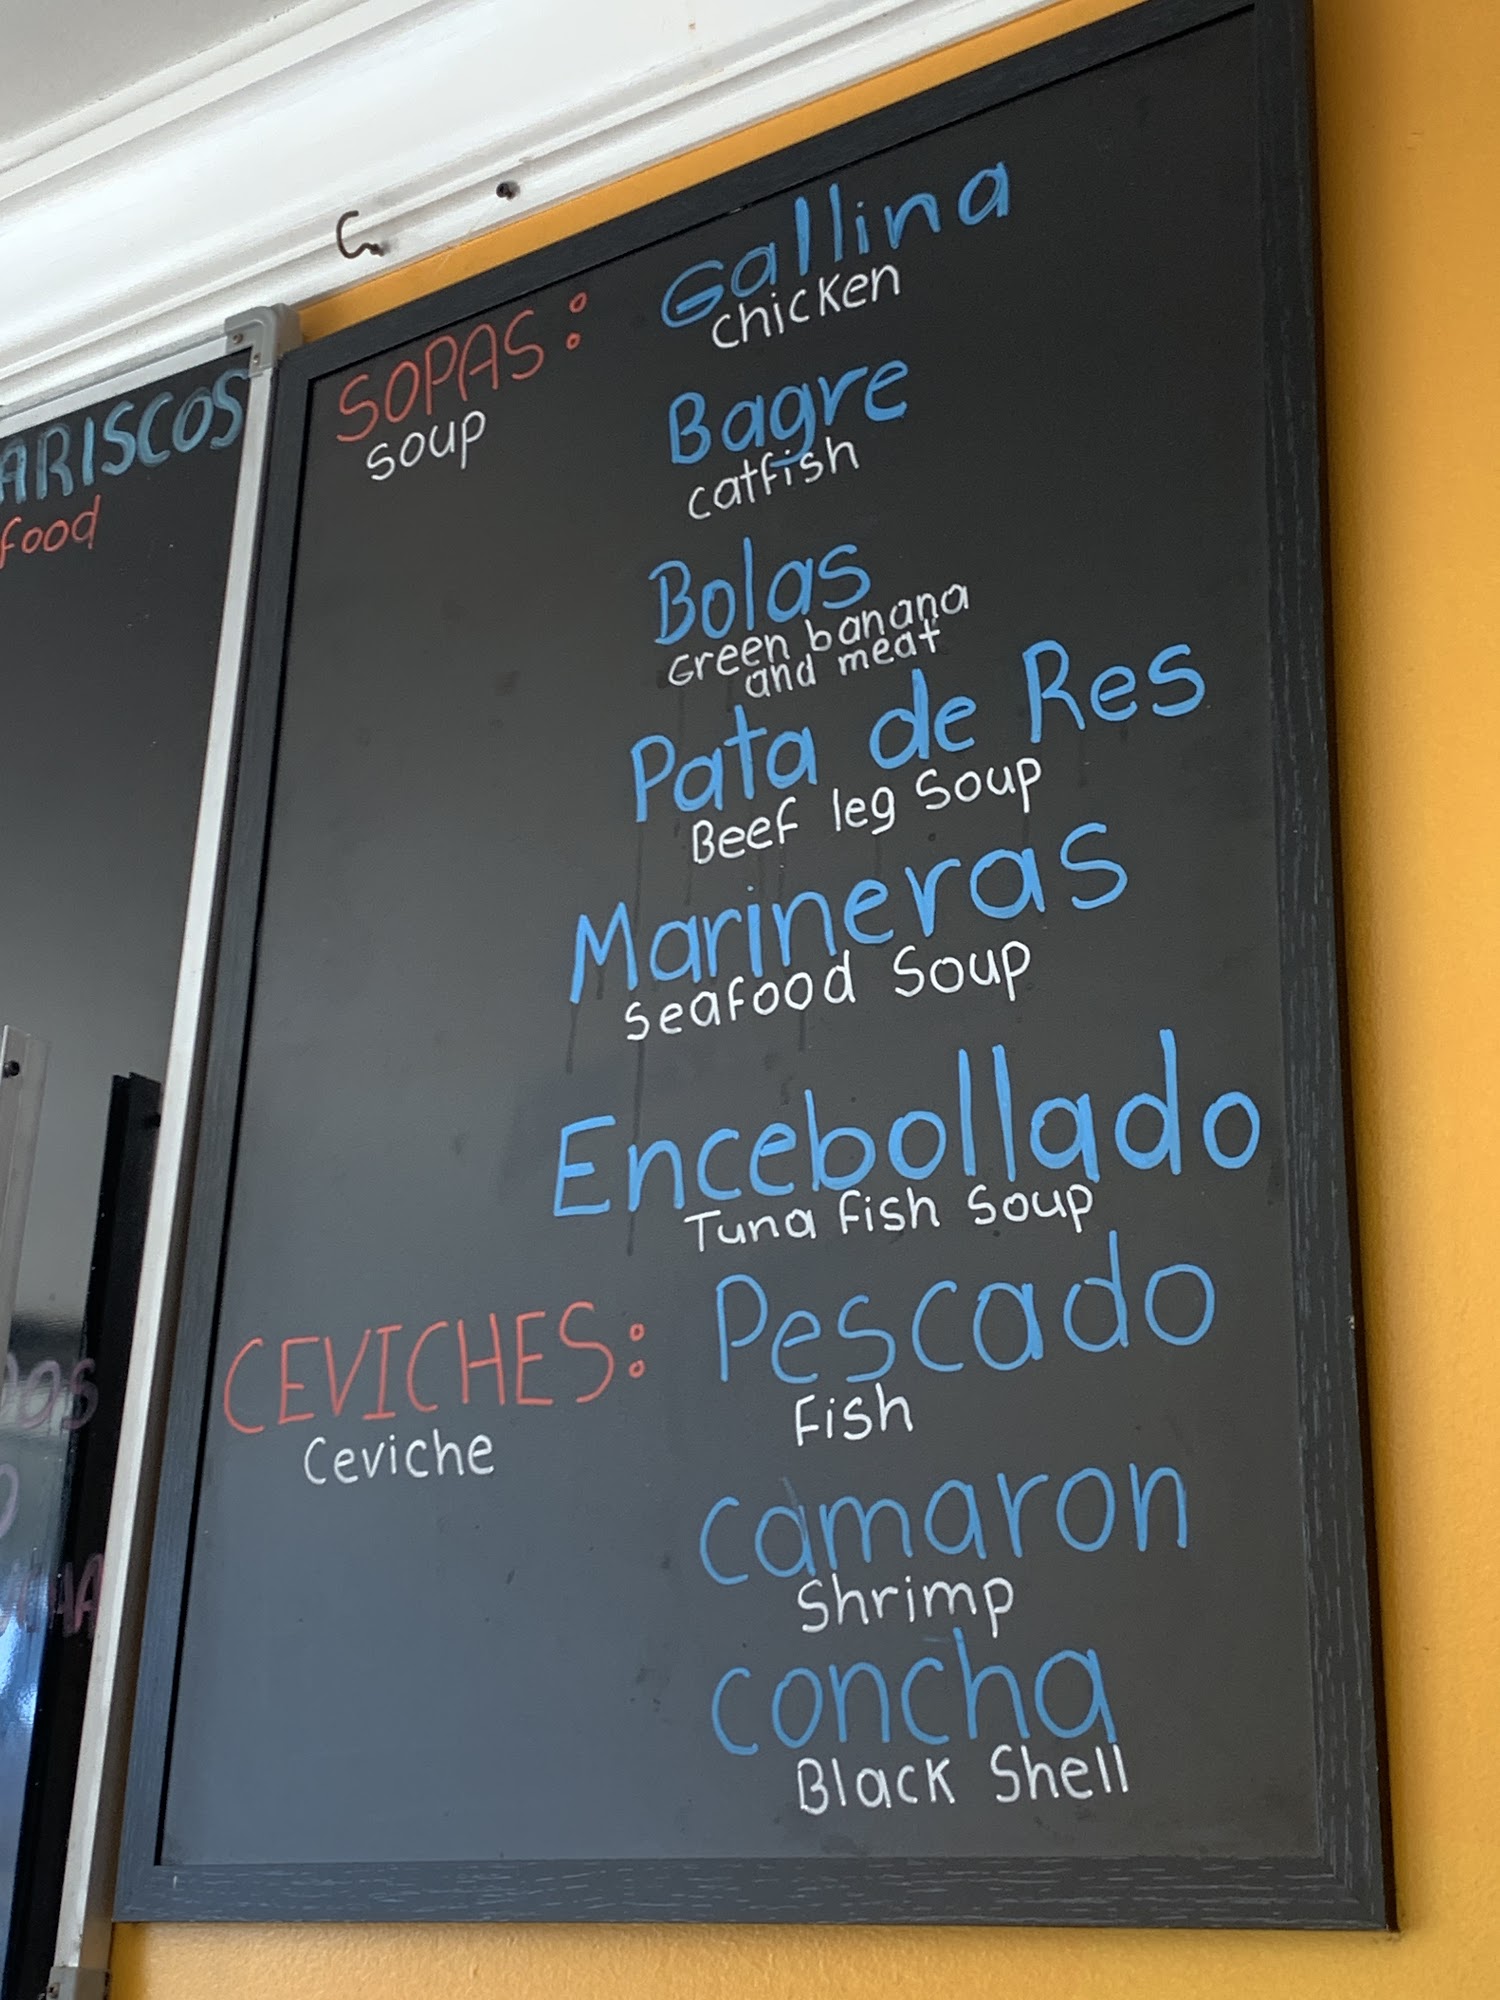 ARISCOS
food
SOPAS:
soup
Gallina
chicken
Bagre
catfish
Bolas
Green banana
and meat
Pata de Res
Beef leg Soup
Marineras
Seafood Soup
Encebollado
Tuna fish Soup
CEVICHES:
Ceviche
Pescado
Fish
Camaron
Shrimp
concha
Black Shell